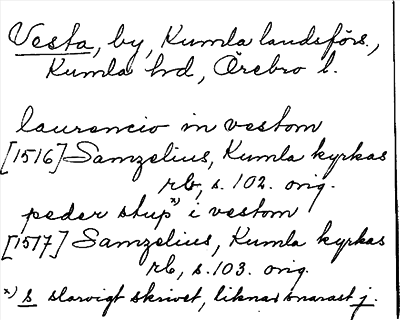 Vesta, by, Kumla landsförs.,
Kumla hd, Örebro l.
laurencio in vestom
[1516] Samzelius, Kumla kyrkas
rb, s. 102. orig.
peder stup x) i vestom
[1517] Samzelius, Kumla kyrkas
rb, s. 103. orig.
x) s slarvigt skrivet, liknar snarast j.